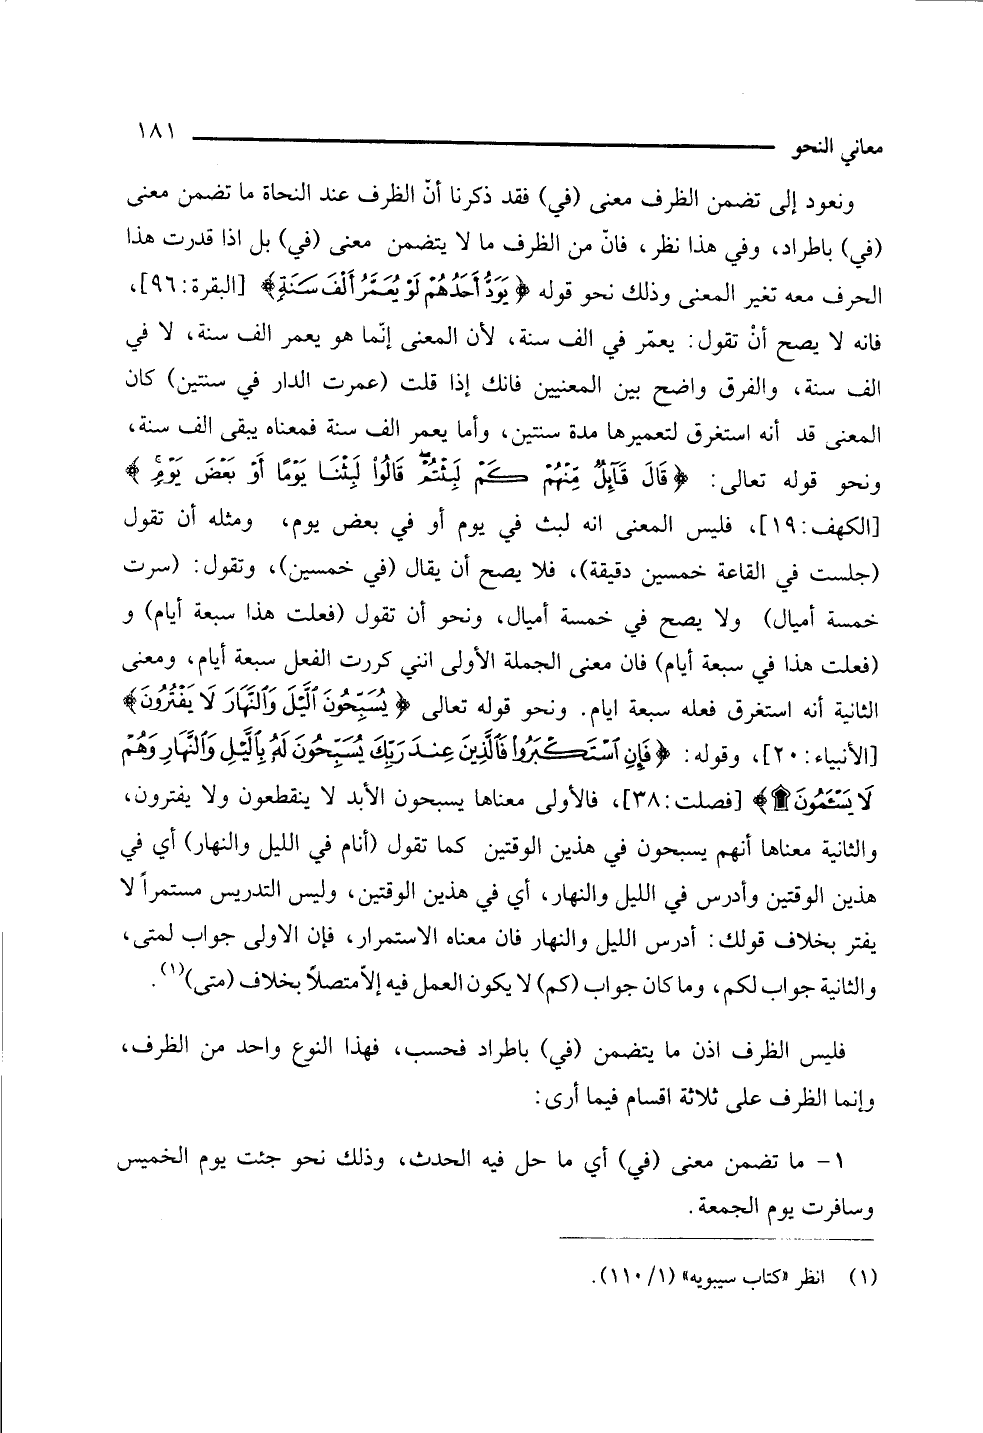 معاني النحو ١٨١
ونعود إلى تضمن الظرف معنى (في) فقد ذكرنا أنّ الظرف عند النحاة ما تضمن معنى
(في) باطراد، وفي هذا نظر، فانّ من الظرف ما لا يتضمن معنى (في) بل اذا قدرت هذا
الحرف معه تغير المعنى وذلك نحو قوله ﴿يَوَدُّ أَحَدُهُمْ لَوْ يُعَمَّرُ أَلْفَ سَنَةٍ﴾ [البقرة:٩٦]،
فانه لا يصح أنْ تقول: يعمّر في الف سنة، لأن المعنى إنّما هو يعمر الف سنة، لا في
الف سنة، والفرق واضح بين المعنيين فانك إذا قلت (عمرت الدار في سنتين) كان
المعنى قد أنه استغرق لتعميرها مدة سنتين، وأما يعمر الف سنة فمعناه يبقى الف سنة،
ونحو قوله تعالى: ﴿قَالَ قَآئِلٌ مِّنْهُمْ كَمْ لَبِثْتُمْ قَالُوا۟ لَبِثْنَا يَوْمًا أَوْ بَعْضَ يَوْمٍ﴾
[الكهف:١٩]، فليس المعنى انه لبث في يوم أو في بعض يوم، ومثله أن تقول
(جلست في القاعة خمسين دقيقة)، فلا يصح أن يقال (في خمسين)، وتقول: (سرت
خمسة أميال) ولا يصح في خمسة أميال، ونحو أن تقول (فعلت هذا سبعة أيام) و
(فعلت هذا في سبعة أيام) فان معنى الجملة الأولى انني كررت الفعل سبعة أيام، ومعنى
الثانية أنه استغرق فعله سبعة ايام. ونحو قوله تعالى ﴿يُسَبِّحُونَ ٱلَّيْلَ وَٱلنَّهَارَ لَا يَفْتُرُونَ﴾
[الأنبياء:٢٠]، وقوله: ﴿فَإِنِ ٱسْتَكْبَرُوا۟ فَٱلَّذِينَ عِندَ رَبِّكَ يُسَبِّحُونَ لَهُۥ بِٱلَّيْلِ وَٱلنَّهَارِ وَهُمْ
لَا يَسْـَٔمُونَ۩﴾ [فصلت:٣٨]، فالأولى معناها يسبحون الأبد لا ينقطعون ولا يفترون،
والثانية معناها أنهم يسبحون في هذين الوقتين كما تقول (أنام في الليل والنهار) أي في
هذين الوقتين وأدرس في الليل والنهار، أي في هذين الوقتين، وليس التدريس مستمراً لا
يفتر بخلاف قولك: أدرس الليل والنهار فان معناه الاستمرار، فإن الاولى جواب لمتى،
والثانية جواب لكم، وما كان جواب (كم) لا يكون العمل فيه إلاّ متصلاً بخلاف (متى)(١).
فليس الظرف اذن ما يتضمن (في) باطراد فحسب، فهذا النوع واحد من الظرف،
وإنما الظرف على ثلاثة اقسام فيما أرى:
١- ما تضمن معنى (في) أي ما حل فيه الحدث، وذلك نحو جئت يوم الخميس
وسافرت يوم الجمعة.
(١) انظر «كتاب سيبويه» (١/١١٠).